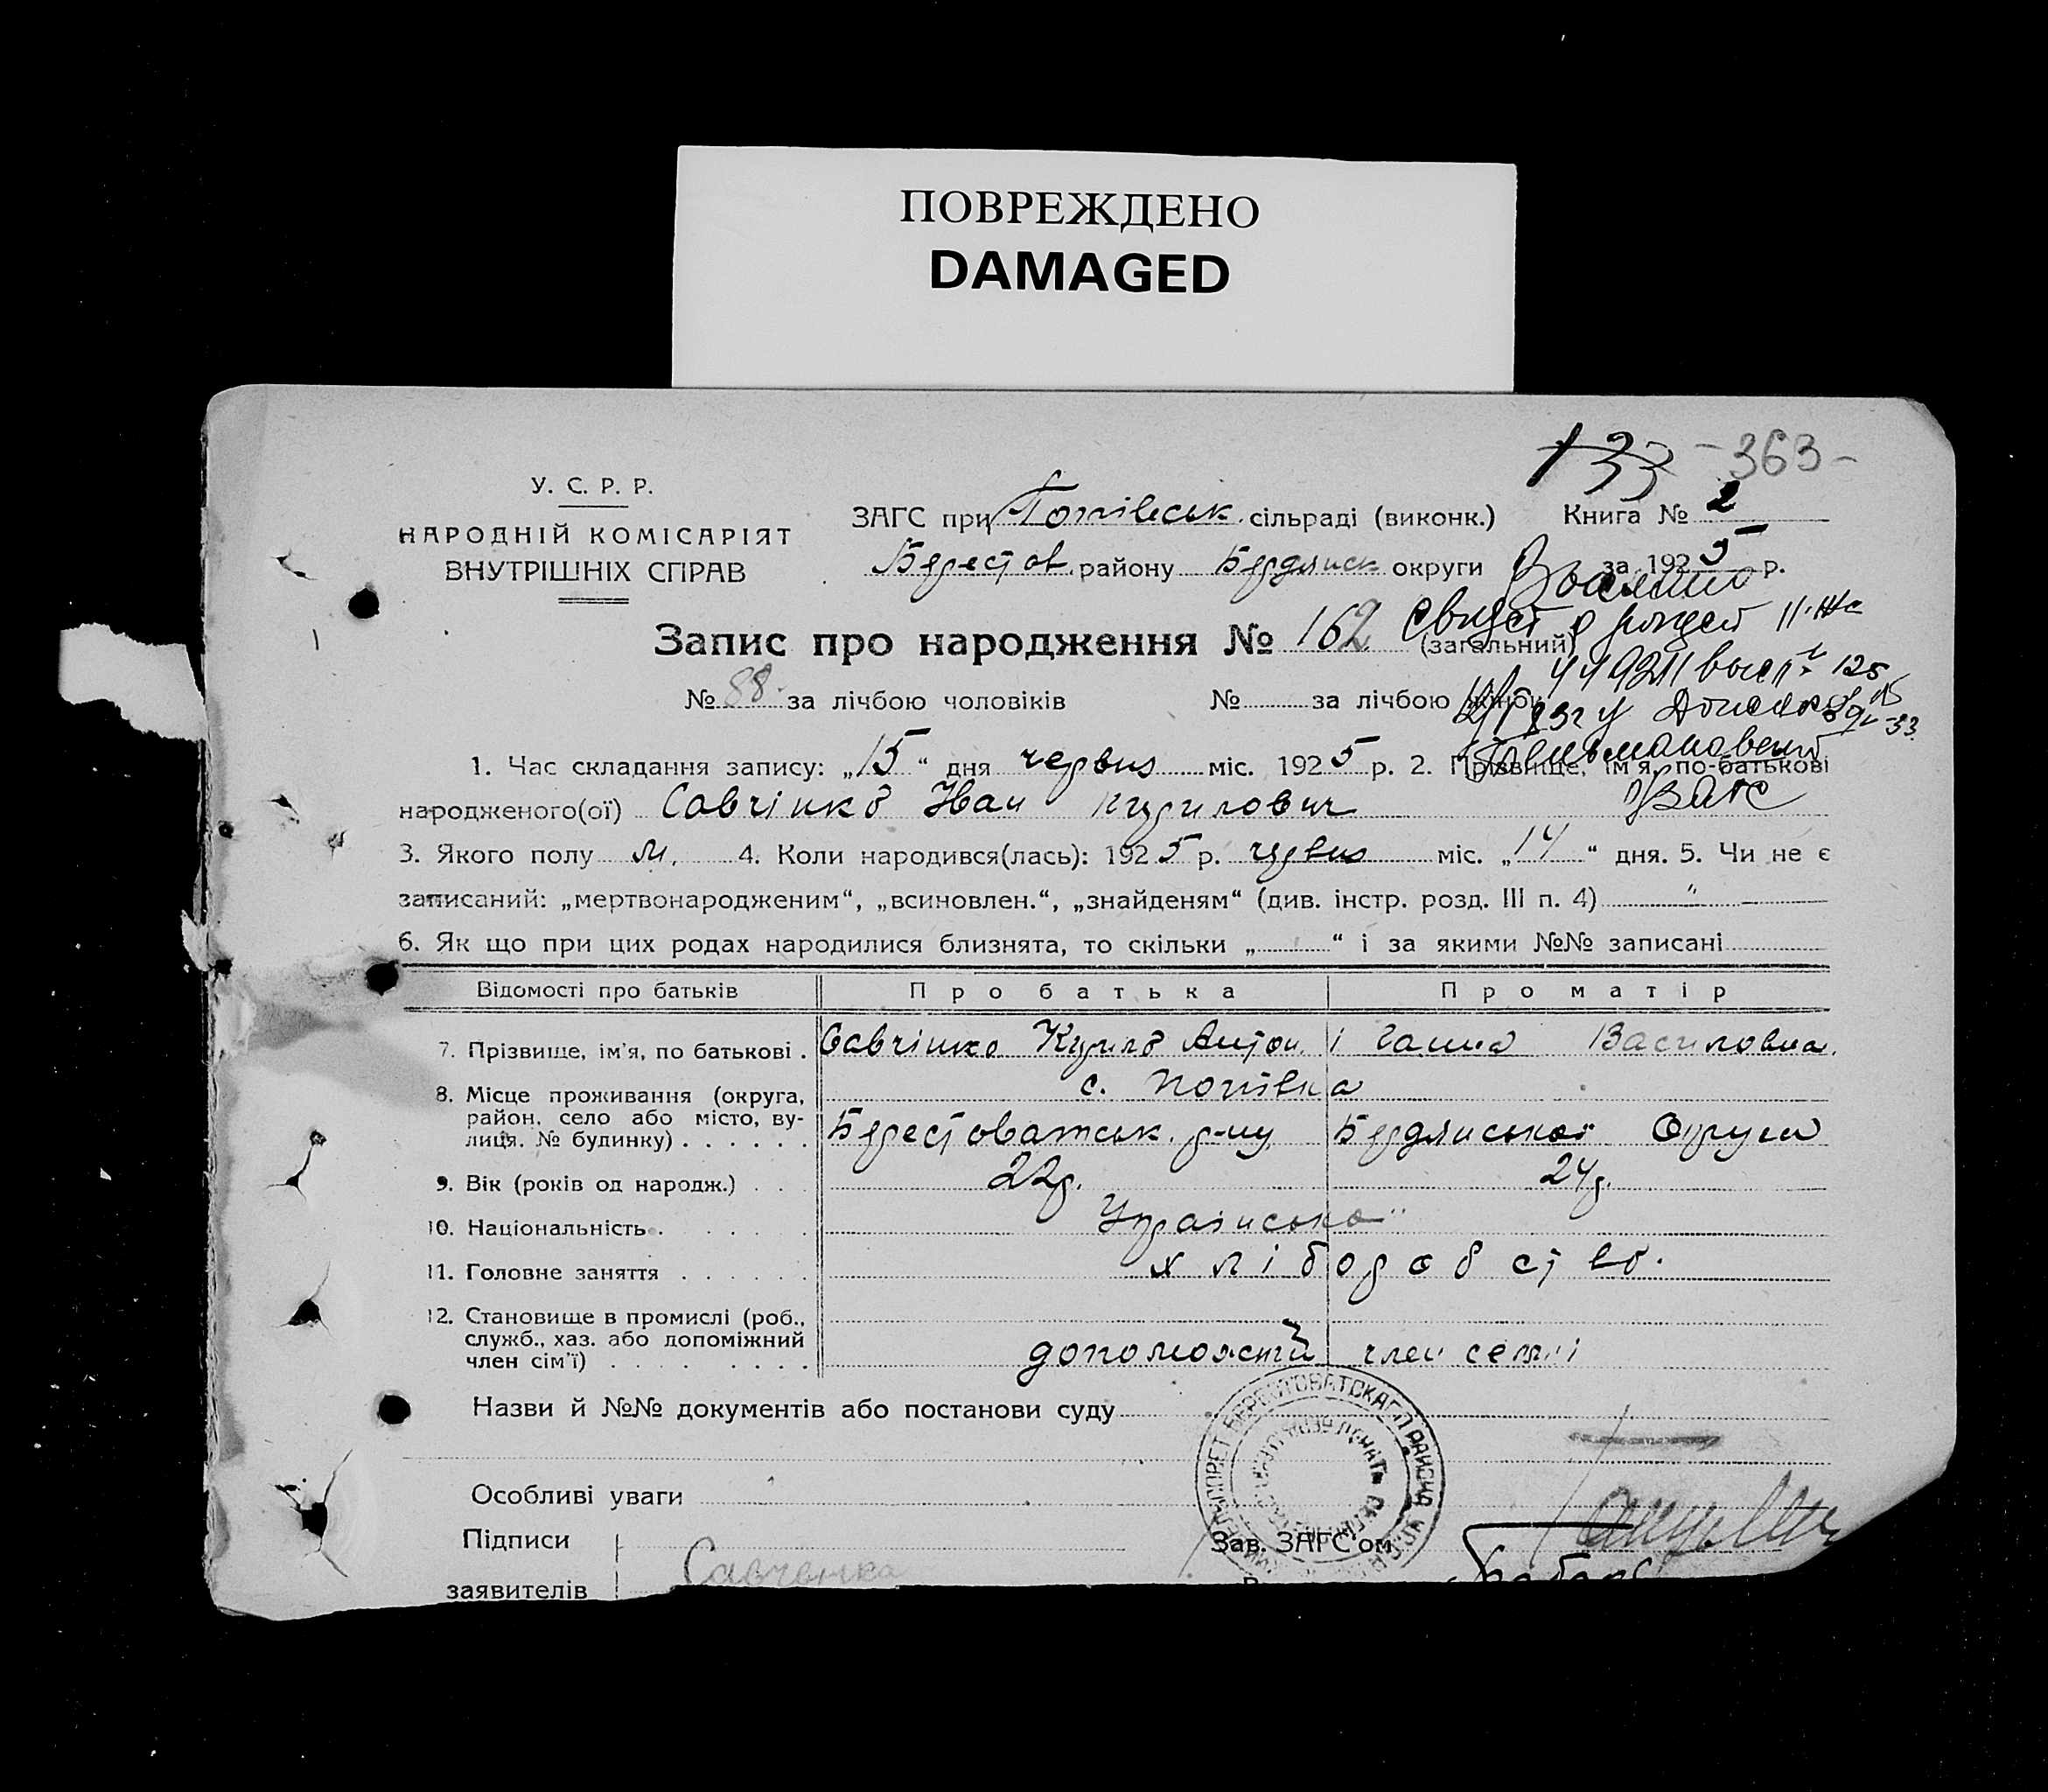 ПОВРЕЖДЕНО
DAMAGED
133 - 363 -
У. С. Р. Р.
НАРОДНІЙ КОМІСАРІЯТ
ВНУТРІШНІХ СПРАВ
ЗАГС при Попівськ. сільраді (виконк.) Книга № 2
Берестов. району Бердянськ округи за 1925 р.
Запис про народження № 162 (загальний)
№ 88 за лічбою чоловіків № за лічбою жінок
1. Час складання запису: „15“ дня червня міс. 1925 р. 2. Прізвище, ім'я, по-батькові
народженого(ої) Савчінко Іван Кирилович
ЗАГС
3. Якого полу м. 4. Коли народився(лась): 1925 р. червня міс. „14“ дня. 5. Чи не є
записаний: „мертвонародженим“, „всиновлен.“, „знайденям“ (див. інстр. розд. III п. 4) "
6. Як що при цих родах народилися близнята, то скільки „ “ і за якими №№ записані
Відомості про батьків Про батька Про матір
7. Прізвище, ім'я, по батькові . Савчінко Кирило Антон. і Ганна Василовна.
8. Місце проживання (округа, район, село або місто, ву-
лиця. № будинку) . . . . . .
с. Попівка
Берестоватськ. р-ну Бердянської Округи
9. Вік (років од народж.) . . . 22р. 24р.
10. Національність . . . . . Українська
11. Головне заняття . . . . . . хліборобство.
12. Становище в промислі (роб.,
служб., хаз. або допоміжний
член сім'ї) . . . . . . . . . допоможній член семії
Назви й №№ документів або постанови суду
Особливі уваги
Підписи
заявителів Савченко
Зав. ЗАГС'ом